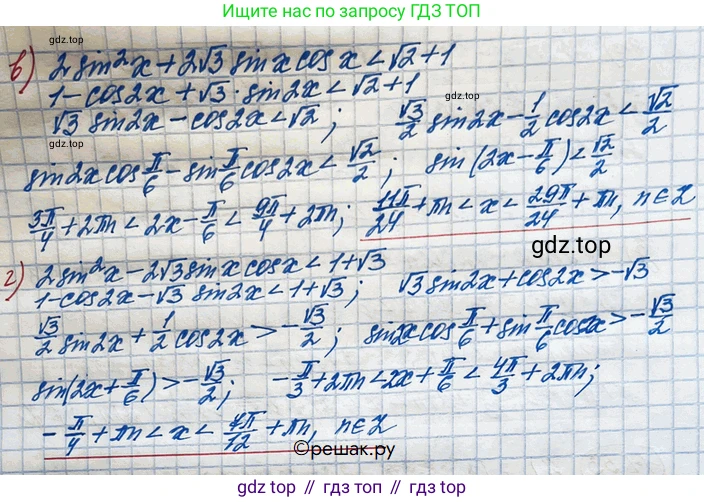 Ищите нас по запросу ГДЗ ТОП
gdz.top
в) 2sin²x+2√3 sinx cosx<√2+1
1-cos2x+√3·sin2x<√2+1
√3 sin2x-cos2x<√2; √3/2 sin2x-1/2 cos2x<√2/2
gdz.top
sin2x cos π/6 - sin π/6 cos2x<√2/2; sin(2x-π/6)<√2/2
3π/4+2πn<2x-π/6<9π/4+2πn; 11π/24+πn<x<29π/24+πn, n∈Z
gdz.top
г) 2sin²x-2√3 sinx cosx<1+√3
1-cos2x-√3 sin2x<1+√3; √3 sin2x+cos2x>-√3
√3/2 sin2x+1/2 cos2x>-√3/2; sin2x cos π/6+sin π/6 cos2x>-√3/2
sin(2x+π/6)>-√3/2; -π/3+2πn<2x+π/6<4π/3+2πn;
-π/4+πn<x<7π/12+πn, n∈Z
©решак.ру
gdz.top // gdz.top // gdz.top // gdz.top